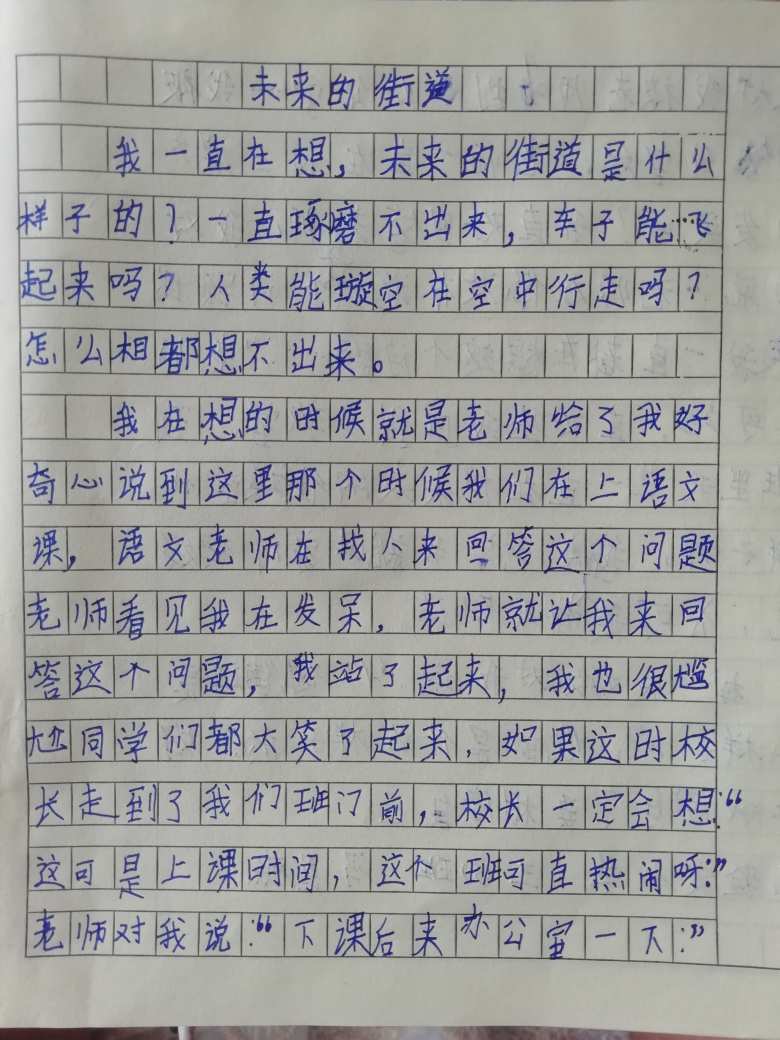 未来的街道
我一直在想，未来的街道是什么
样子的？一直琢磨不出来，车子能飞
起来吗？人类能璇空在空中行走吗？
怎么相都想不出来。
我在想的时候就是老师给了我好
奇心说到这里那个时候我们在上语文
课，语文老师在找人来回答这个问题
老师看见我在发呆，老师就让我来回
答这个问题，我站了起来，我也很尴
尬同学们都大笑了起来，如果这时校
长走到了我们班门前，校长一定会想：“
这可是上课时间，这个班可直热闹呀：”
老师对我说：“下课后来办公室一下：”